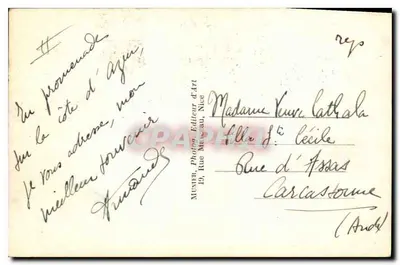 II
En promenade
sur la côte d'azur,
je vous adresse, mon
meilleur souvenir
MUNIER, Photos Editeur d'Art
19, Rue Nice
reçu
Madame Veuve Cathala
Villa Ste Cécile
Rue d'Assas
Carcassonne
(Aude)